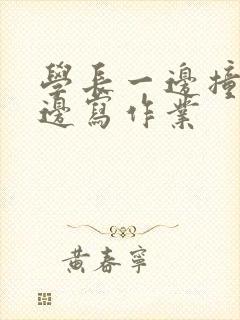 學長一邊撞
邊寫作業
黃春寧